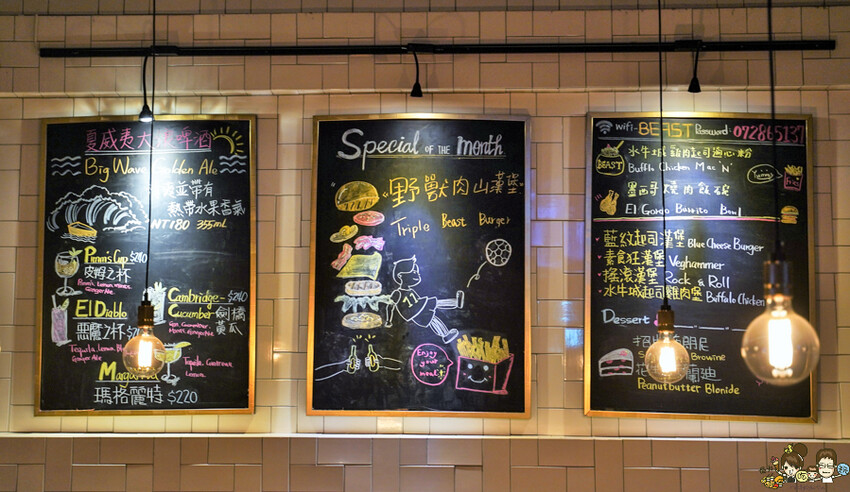 夏威夷大 啤酒
Big Wave Golden Ale
並帶有
熱帶水果香氣
NT180 355ml
Pimm's Cup $240
皮姆之杯
Ginger Ale
El Diablo
惡魔之杯
Tequila, Lemon
Ginger Ale
Cambridge $240
Cucumber 劍橋
黃瓜
Tequila, Cointreau
Lemon
瑪格麗特 $220
Special OF THE month
"野獸肉山漢堡"
Triple Beast Burger
11
Enjoy
your
meal
wifi-BEAST Password: 072865137
BEAST
水牛城雞肉起司通心粉
Buffalo Chicken Mac 'N'
Yummy
Fries
墨西哥燒肉飯碗
El Gordo Burrito Bowl
藍紋起司漢堡 Blue Cheese Burger
素食狂漢堡 Veghammer
搖滾漢堡 Rock & Roll
水牛城起司雞肉堡 Buffalo Chicken
Dessert
Brownie
花生 蘭迪
Peanutbutter Blondie